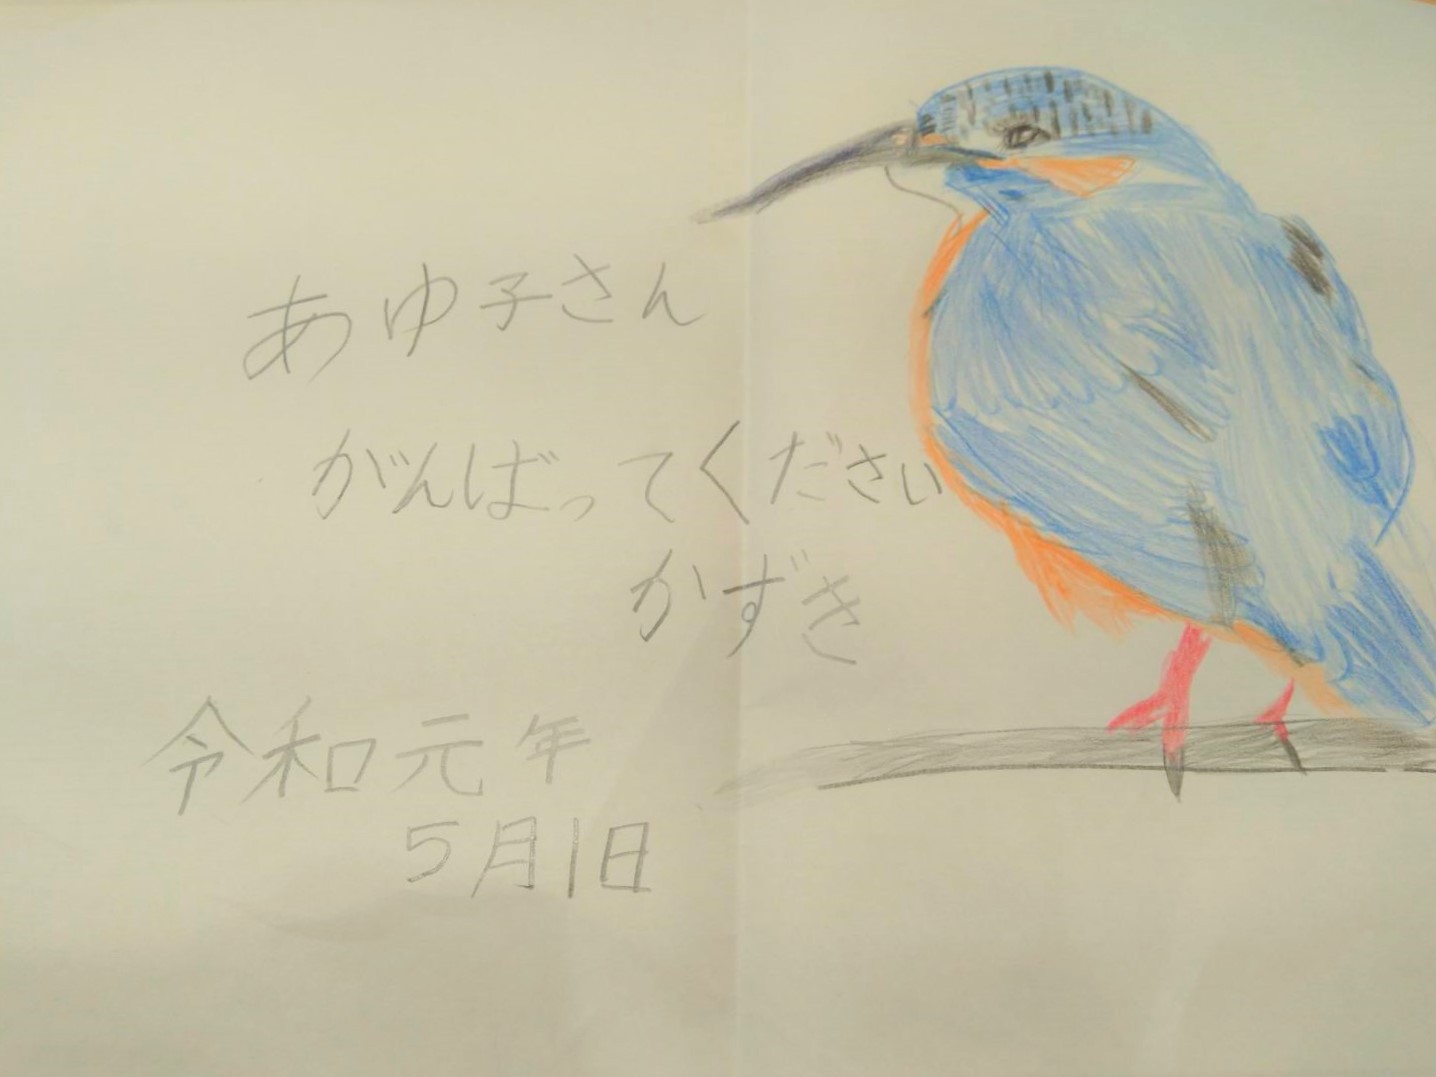 あゆ子さん
がんばってください
かずき
令和元年
5月1日